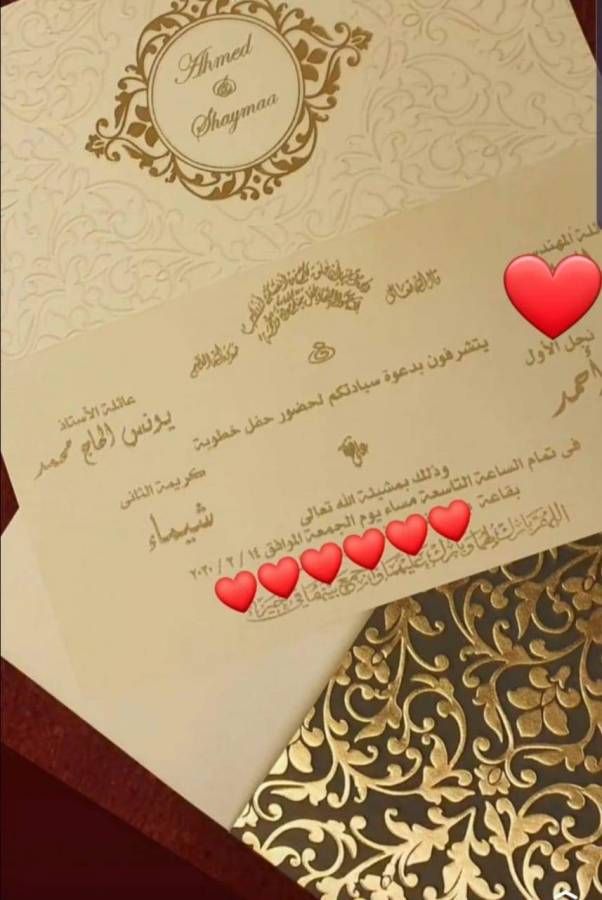 Ahmed
&
Shaymaa
قال الله تعالى
صدق الله العظيم
عائلة المهندس
عائلة الأستاذ
يونس الحاج محمد
يتشرفون بدعوة سيادتكم لحضور حفل خطوبة
نجل الأول
أحمد
على
كريمة الثانى
شيماء
وذلك بمشيئة الله تعالي
فى تمام الساعة التاسعة مساء يوم الجمعة الموافق ١٤ / ٢ / ٢٠٢٠
بقاعة
اللهم بارك لهما وبارك عليهما واجمع بينهما في خير